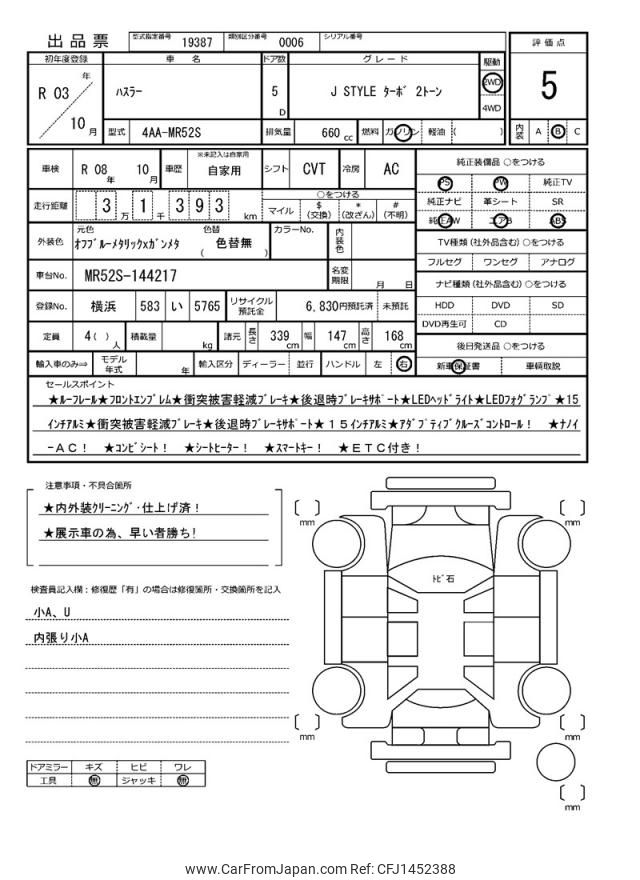 出品票 型式指定番号 19387 類別区分番号 0006 シリアル番号
初年度登録 車名 ドア数 グレード 駆動 評価点
R 03 年 10 月 ハスラー 5 D J STYLE ターボ 2トーン 2WD 4WD 5
型式 4AA-MR52S 排気量 660 cc 燃料 ガソリン 軽油 ( ) 内装 A B C
車検 R 08 年 10 月 車歴 ※未記入は自家用 自家用 シフト CVT 冷房 AC 純正装備品 ○をつける
PS PW 純正TV
走行距離 3 万 1 千 3 9 3 km ○をつける
マイル $ (交換) * (改ざん) # (不明)
純正ナビ 革シート SR
純正AW エアB ABS
外装色 元色 オフブルーメタリックxガンメタ 色替 ( 色替無 ) カラーNo. 内装色
TV種類 (社外品含む) ○をつける
フルセグ ワンセグ アナログ
車台No. MR52S-144217 名変期限 月 日
ナビ種類 (社外品含む) ○をつける
登録No. 横浜 583 い 5765 リサイクル預託金 6,830円預託済 未預託
HDD DVD SD
DVD再生可 CD
定員 4( ) 人 積載量 kg 諸元 長さ 339 cm 幅 147 cm 高さ 168 cm
後日発送品 ○をつける
輸入車のみ⇒ モデル年式 年 輸入区分 ディーラー 並行 ハンドル 左 右
新車保証書 車輌取説
セールスポイント
★ルーフレール★フロントエンブレム★衝突被害軽減ブレーキ★後退時ブレーキサポート★LEDヘッドライト★LEDフォグランプ★15
インチアルミ★衝突被害軽減ブレーキ★後退時ブレーキサポート★15インチアルミ★アダプティブクルーズコントロール! ★ナノイ
-AC! ★コンビシート! ★シートヒーター! ★スマートキー! ★ETC付き!
注意事項・不具合箇所
★内外装クリーニング・仕上げ済!
★展示車の為、早い者勝ち!
検査員記入欄:修復歴「有」の場合は修復箇所・交換箇所を記入
小A、U
内張り小A
ドアミラー キズ ヒビ ワレ
工具 無 ジャッキ 無
[ ] mm
[ ] mm
トビ石
[ ] mm
[ ] mm
[ ] mm
www.CarFromJapan.com Ref: CFJ1452388